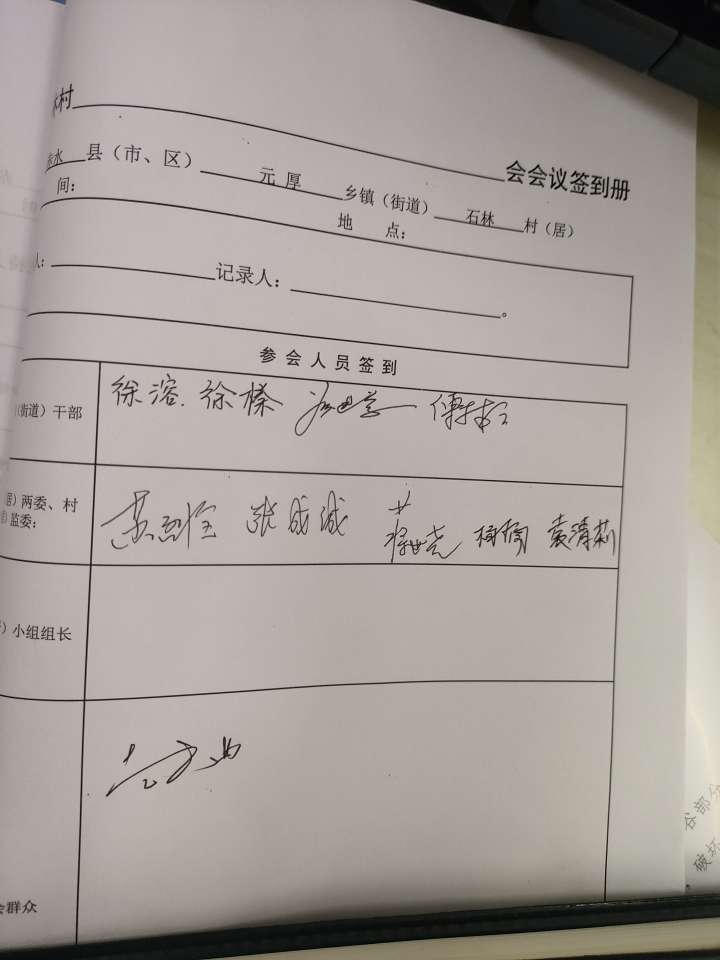 村 会会议签到册
水 县（市、区） 元厚 乡镇（街道） 石林 村（居）
间： 地 点：
记录人： 。
参会人员签到
街道）干部 徐溶. 徐榛
居）两委、村 张成诚 袁清莉
监委：
）小组组长
会群众
谷部分
破坏